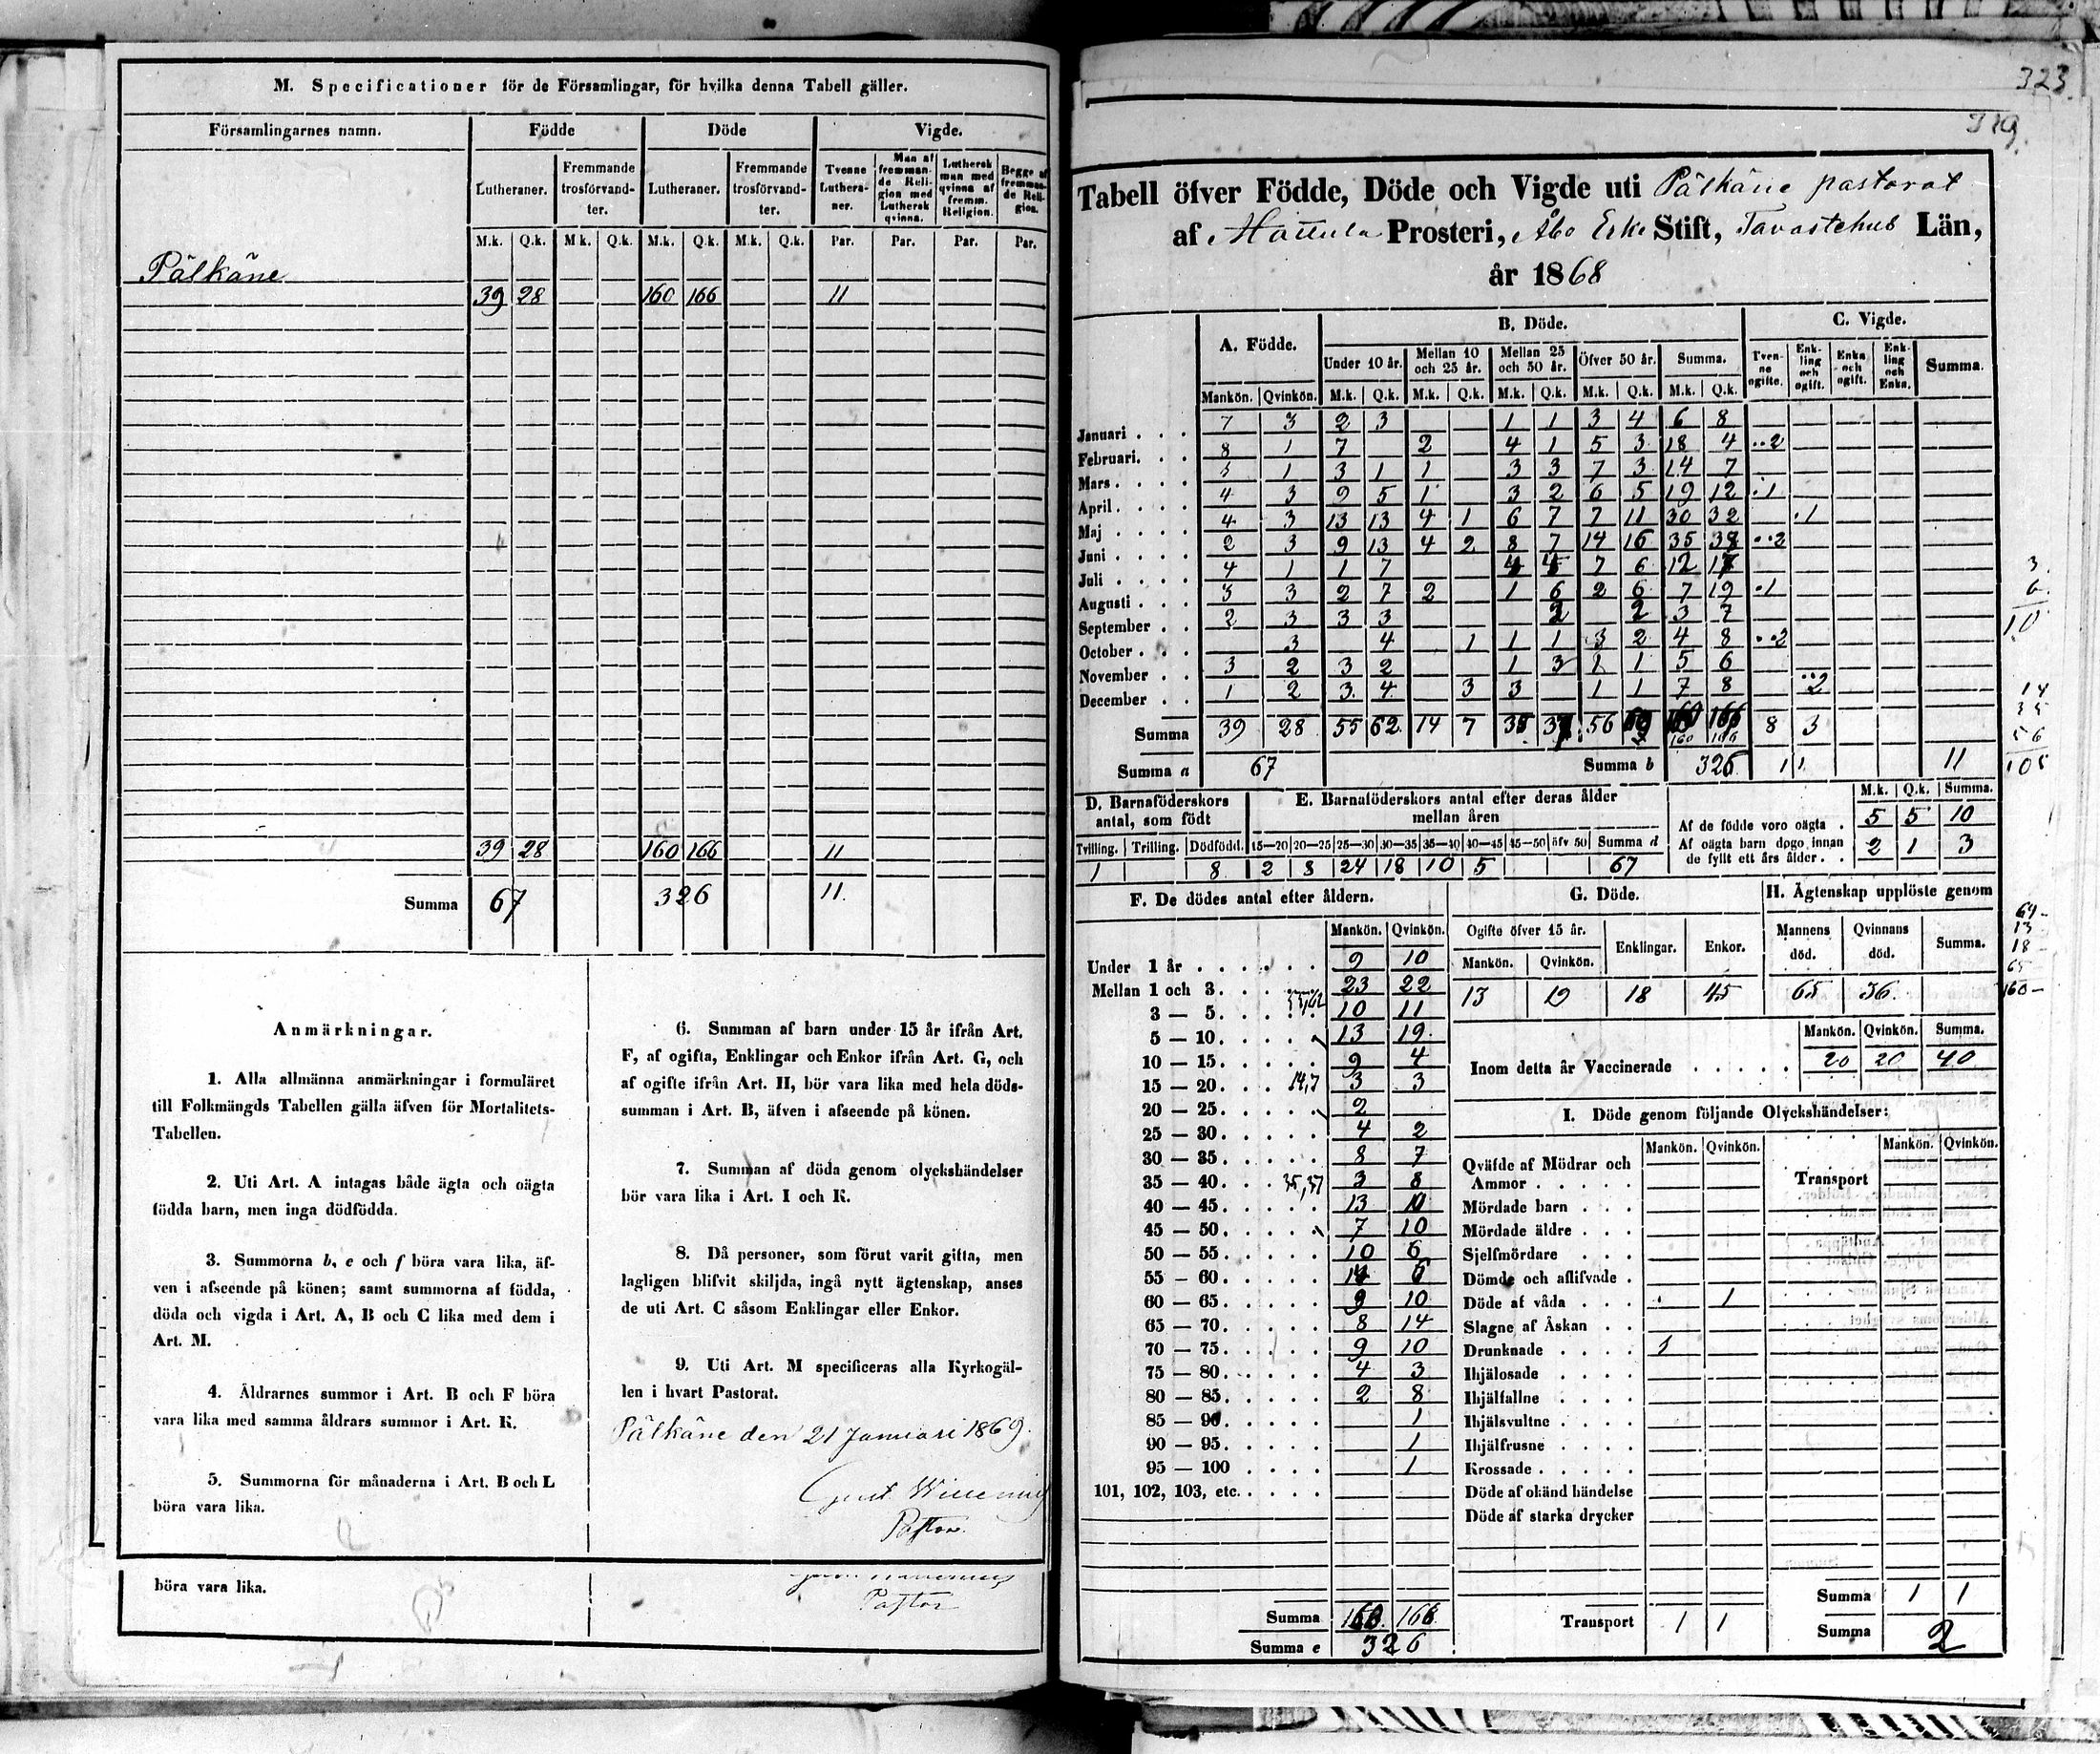 M. Specificationer för de Församlingar, för hvilka denna Tabell gäller.
Församlingarnes namn. Födde Döde Vigde.
Lutheraner. Fremmande trosförvandter. Lutheraner. Fremmande trosförvandter. Tvenne Lutheraner. Man af fremmande Religion med Luthersk qvinna. Luthersk man med qvinna af fremm. Religion. Begge af fremmande Religion.
M.k. Q.k. M.k. Q.k. M.k. Q.k. M.k. Q.k. Par. Par. Par. Par.
Pälkäne
39 28 160 166 11
39 28 160 166 11
Summa 67 326 11.
Anmärkningar.
1. Alla allmänna anmärkningar i formuläret
till Folkmängds Tabellen gälla äfven för Mortalitets-
Tabellen.
2. Uti Art. A intagas både ägta och oägta
födda barn, men inga dödfödda.
3. Summorna b, e och f böra vara lika, äf-
ven i afseende på könen; samt summorna af födda,
döda och vigda i Art. A, B och C lika med dem i
Art. M.
4. Åldrarnes summor i Art. B och F böra
vara lika med samma åldrars summor i Art. K.
5. Summorna för månaderna i Art. B och L
böra vara lika.
6. Summan af barn under 15 år ifrån Art.
F, af ogifta, Enklingar och Enkor ifrån Art. G, och
af ogifte ifrån Art. H, bör vara lika med hela döds-
summan i Art. B, äfven i afseende på könen.
7. Summan af döda genom olyckshändelser
bör vara lika i Art. I och K.
8. Då personer, som förut varit gifta, men
lagligen blifvit skiljda, ingå nytt ägtenskap, anses
de uti Art. C såsom Enklingar eller Enkor.
9. Uti Art. M specificeras alla Kyrkogäl-
len i hvart Pastorat.
Pälkäne den 21 Januari 1869.
Gust. 
Pastor.
böra vara lika.
Pastor
323
319
Tabell öfver Födde, Döde och Vigde uti Pälkäne pastorat
af Hattula Prosteri, Åbo Erke Stift, Tavastehus Län,
år 1868
A. Födde. B. Döde. C. Vigde.
Under 10 år. Mellan 10 och 25 år. Mellan 25 och 50 år. Öfver 50 år. Summa. Tvenne ogifte. Enkling och ogift. Enka och ogift. Enkling och Enka. Summa.
Mankön. Qvinkön. M.k. Q.k. M.k. Q.k. M.k. Q.k. M.k. Q.k. M.k. Q.k.
Januari . . . 7 3 2 3 1 1 3 4 6 8
Februari. . . 8 1 7 2 4 1 5 3 18 4 2
Mars . . . . 1 3 1 1 3 3 7 3 14 7
April . . . . 4 3 9 5 1 3 2 6 5 19 12 1
Maj . . . . 4 3 13 13 4 1 6 7 7 11 30 32 1
Juni . . . . 2 3 9 13 4 2 8 7 14 16 35 38 2
Juli . . . . 4 1 1 7 4 4 7 6 12 17
Augusti . . . 3 3 2 7 2 1 6 2 6 7 19 1
September . . 2 3 3 3 2 2 3 7
October . . . 3 4 1 1 1 3 2 4 8 2
November . . 3 2 3 2 1 3 1 1 5 6
December . . 1 2 3 4 3 3 1 1 7 8 2
Summa 39 28 55 62 14 7 35 37 56 160 166 8 3
Summa a 67 Summa b 326 11 11
D. Barnaföderskors antal, som födt
E. Barnaföderskors antal efter deras ålder mellan åren
M.k. Q.k. Summa.
Af de födde voro oägta . 5 5 10
Af oägta barn dogo innan de fyllt ett års ålder . . 2 1 3
Tvilling. Trilling. Dödfödd. 15—20 20—25 25—30 30—35 35—40 40—45 45—50 öfv 50 Summa d
1 8 2 8 24 18 10 5 67
F. De dödes antal efter åldern.
Mankön. Qvinkön.
Under 1 år . . . . . . 9 10
Mellan 1 och 3. . . . . 23 22
3 — 5. . . . . 55,62 10 11
5 — 10. . . . . 13 19
10 — 15. . . . . 9 4
15 — 20. . . 14,7 3 3
20 — 25. . . . . 2
25 — 30. . . . . 4 2
30 — 35. . . . . 8 7
35 — 40. . . 35,37 3 8
40 — 45. . . . . 13 10
45 — 50. . . . . 7 10
50 — 55. . . . . 10 6
55 — 60. . . . . 14 6
60 — 65. . . . . 9 10
65 — 70. . . . . 8 14
70 — 75. . . . . 9 10
75 — 80. . . . . 4 3
80 — 85. . . . . 2 8
85 — 90. . . . . 1
90 — 95. . . . . 1
95 — 100 . . . . 1
101, 102, 103, etc. . . . .
Summa 160 166
Summa e 326
G. Döde.
Ogifte öfver 15 år. Enklingar. Enkor.
Mankön. Qvinkön.
13 19 18 45
H. Ägtenskap upplöste genom
Mannens död. Qvinnans död. Summa.
65 36
Mankön. Qvinkön. Summa.
Inom detta år Vaccinerade . . . . . 20 20 40
I. Döde genom följande Olyckshändelser:
Mankön. Qvinkön. Mankön. Qvinkön.
Qväfde af Mödrar och
Ammor . . . . . Transport
Mördade barn . . .
Mördade äldre . . .
Sjelfmördare . . .
Dömde och aflifvade .
Döde af våda . . . 1
Slagne af Åskan . .
Drunknade . . . . 1
Ihjälosade . . . .
Ihjälfallne . . . .
Ihjälsvultne . . . .
Ihjälfrusne . . . .
Krossade . . . . .
Döde af okänd händelse
Döde af starka drycker
Summa 1 1
Transport 1 1 Summa 2
3
6
10
14
35
56
105
64
13
18
65
160